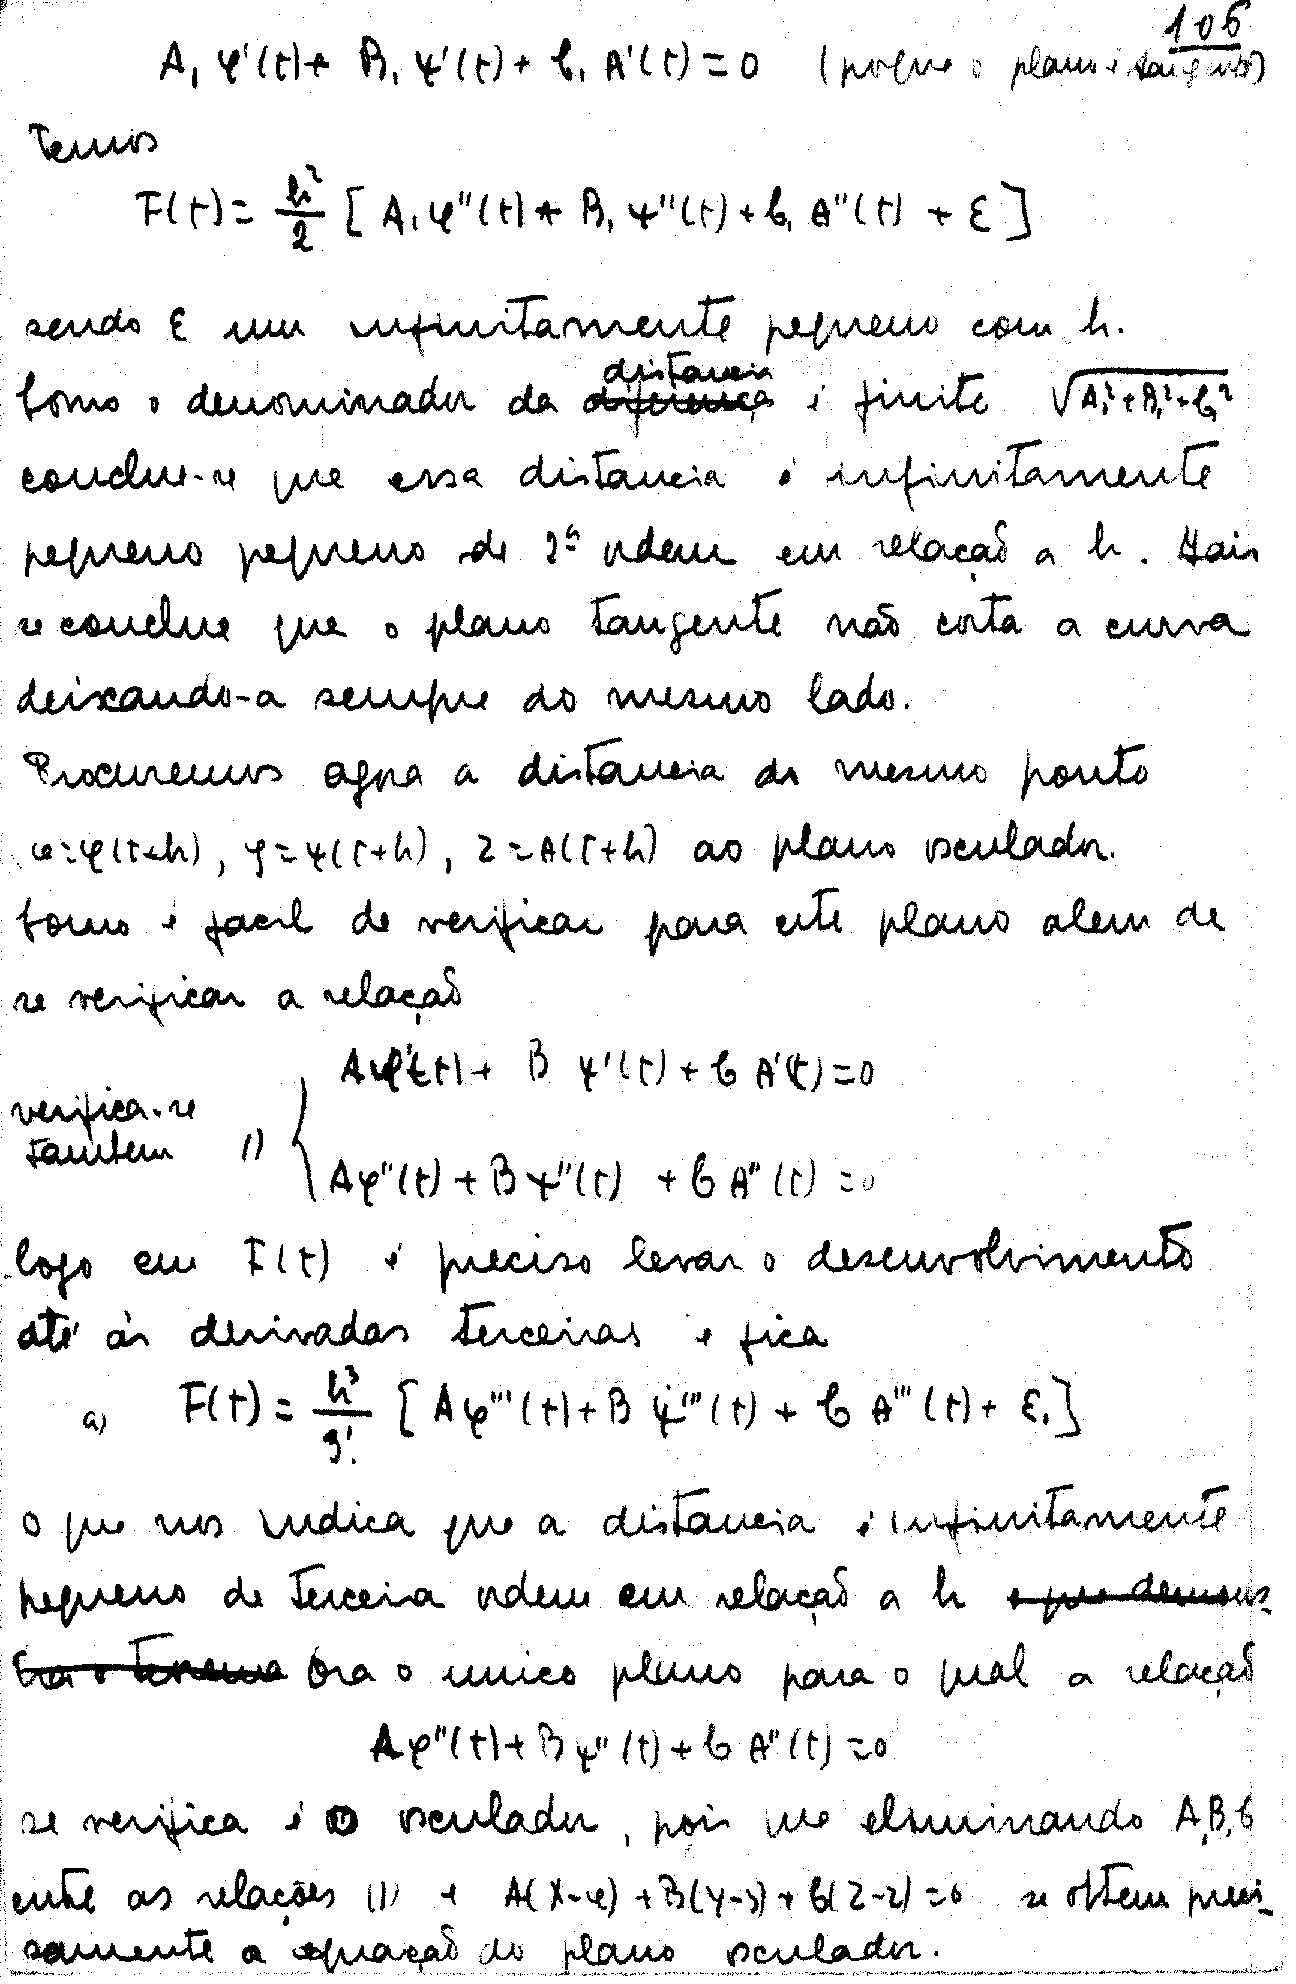 106
A₁ φ'(t) + B₁ ψ'(t) + C₁ A'(t) = 0 (porque o plano é tangente)
Temos
F(t) = h²/2 [ A₁ φ''(t) + B₁ ψ''(t) + C₁ A''(t) + ε ]
sendo ε um infinitamente pequeno com h.
Como o denominador da diferença distancia é finito √A₁²+B₁²+C₁²
conclue-se que essa distancia é infinitamente
pequeno pequeno de 2ª ordem em relação a h. Mais
se conclue que o plano tangente não corta a curva
deixando-a sempre do mesmo lado.
Procuremos agora a distancia do mesmo ponto
x=φ(t+h), y=ψ(t+h), z=A(t+h) ao plano osculador.
Como é facil de verificar para este plano alem de
se verificar a relação
Aφ'(t) + B ψ'(t) + C A'(t) = 0
verifica-se
tambem 1)
Aφ''(t) + B ψ''(t) + C A''(t) = 0
logo em F(t) é preciso levar o desenvolvimento
até ás derivadas terceiras e fica
a) F(t) = h³/3! [ Aφ'''(t) + B ψ'''(t) + C A'''(t) + ε₁ ]
o que nos indica que a distancia é infinitamente
pequeno de terceira ordem em relação a h o que demons-
tra o teorema Ora o unico plano para o qual a relação
Aφ''(t) + B ψ''(t) + C A''(t) = 0
se verifica é o osculador, pois que eliminando A,B,C
entre as relações (1) e A(X-x) + B(Y-y) + C(Z-z) = 0 se obtem preci-
samente a equação do plano osculador.